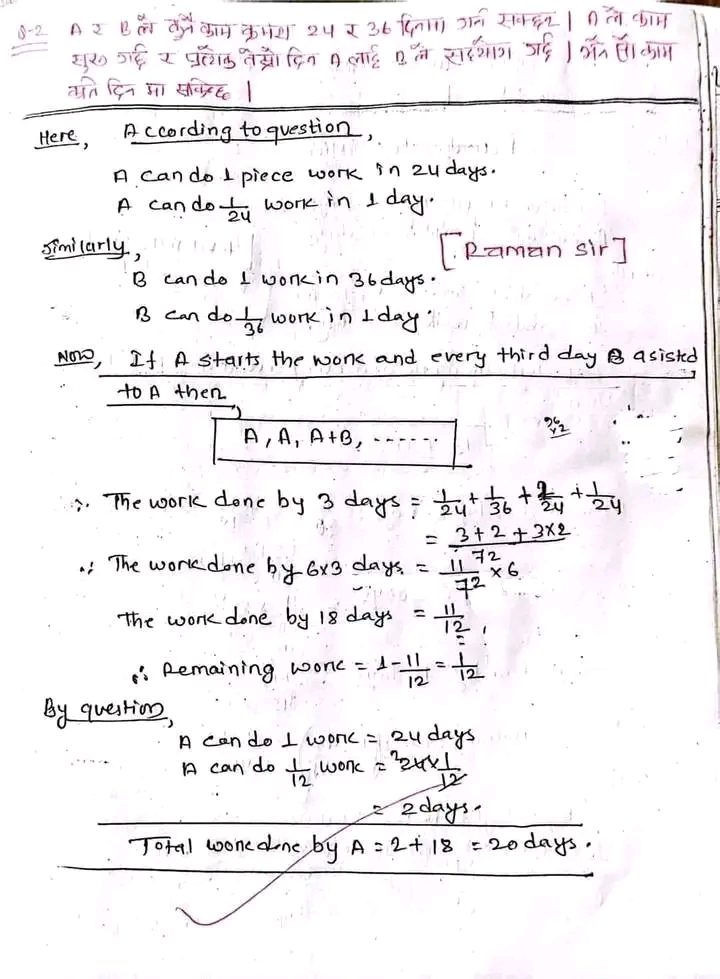 Q-2 A र B ले कुनै काम क्रमश 24 र 36 दिनमा गर्न सक्छन । A ले काम
सुरु गर्छ र प्रत्येक तेस्रो दिन A लाई B ले सहयोग गर्छ । भने सो काम
कति दिन मा सकिन्छ ।
Here, According to question,
A can do 1 piece work in 24 days.
A can do 1/24 work in 1 day.
Similarly, [Raman sir]
B can do 1 work in 36 days.
B can do 1/36 work in 1 day
Now, If A starts the work and every third day B asisted
to A then
A, A, A+B, ------
∴ The work done by 3 days = 1/24 + 1/36 + 1/24 + 1/24
= 3+2+3×2/72
∴ The work done by 6×3 days = 11/72 × 6
The work done by 18 days = 11/12
∴ Remaining work = 1 - 11/12 = 1/12
By question,
A can do 1 work = 24 days
A can do 1/12 work = 24 × 1/12
= 2 days.
Total work done by A = 2 + 18 = 20 days.